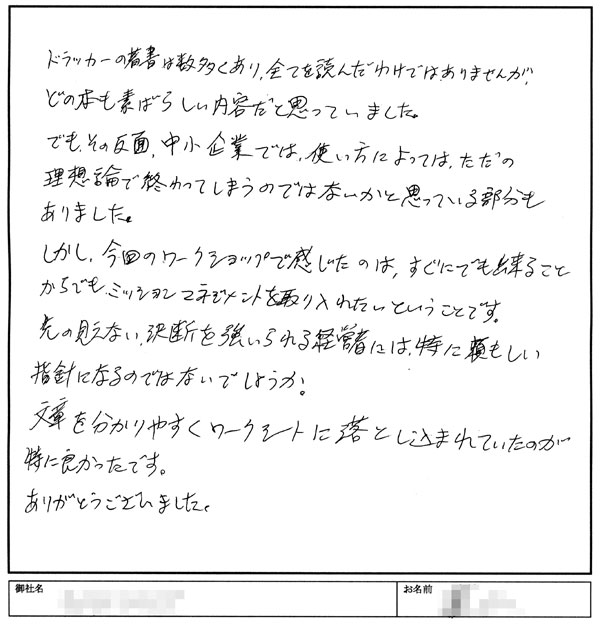 ドラッカーの著書は数多くあり、全てを読んだわけではありませんが、
どの本も素ばらしい内容だと思っていました。
でも、その反面、中小企業では、使い方によっては、ただの
理想論で終わってしまうのではないかと思っている部分も
ありました。
しかし、今回のワークショップで感じたのは、すぐにでも出来ること
からでも、ミッションマネジメントを取り入れたいということです。
先の見えない、決断を強いられる経営者には、特に頼もしい
指針になるのではないでしょうか。
文章を分かりやすくワークシートに落とし込まれていたのが
特に良かったです。
ありがとうございました。
御社名
お名前